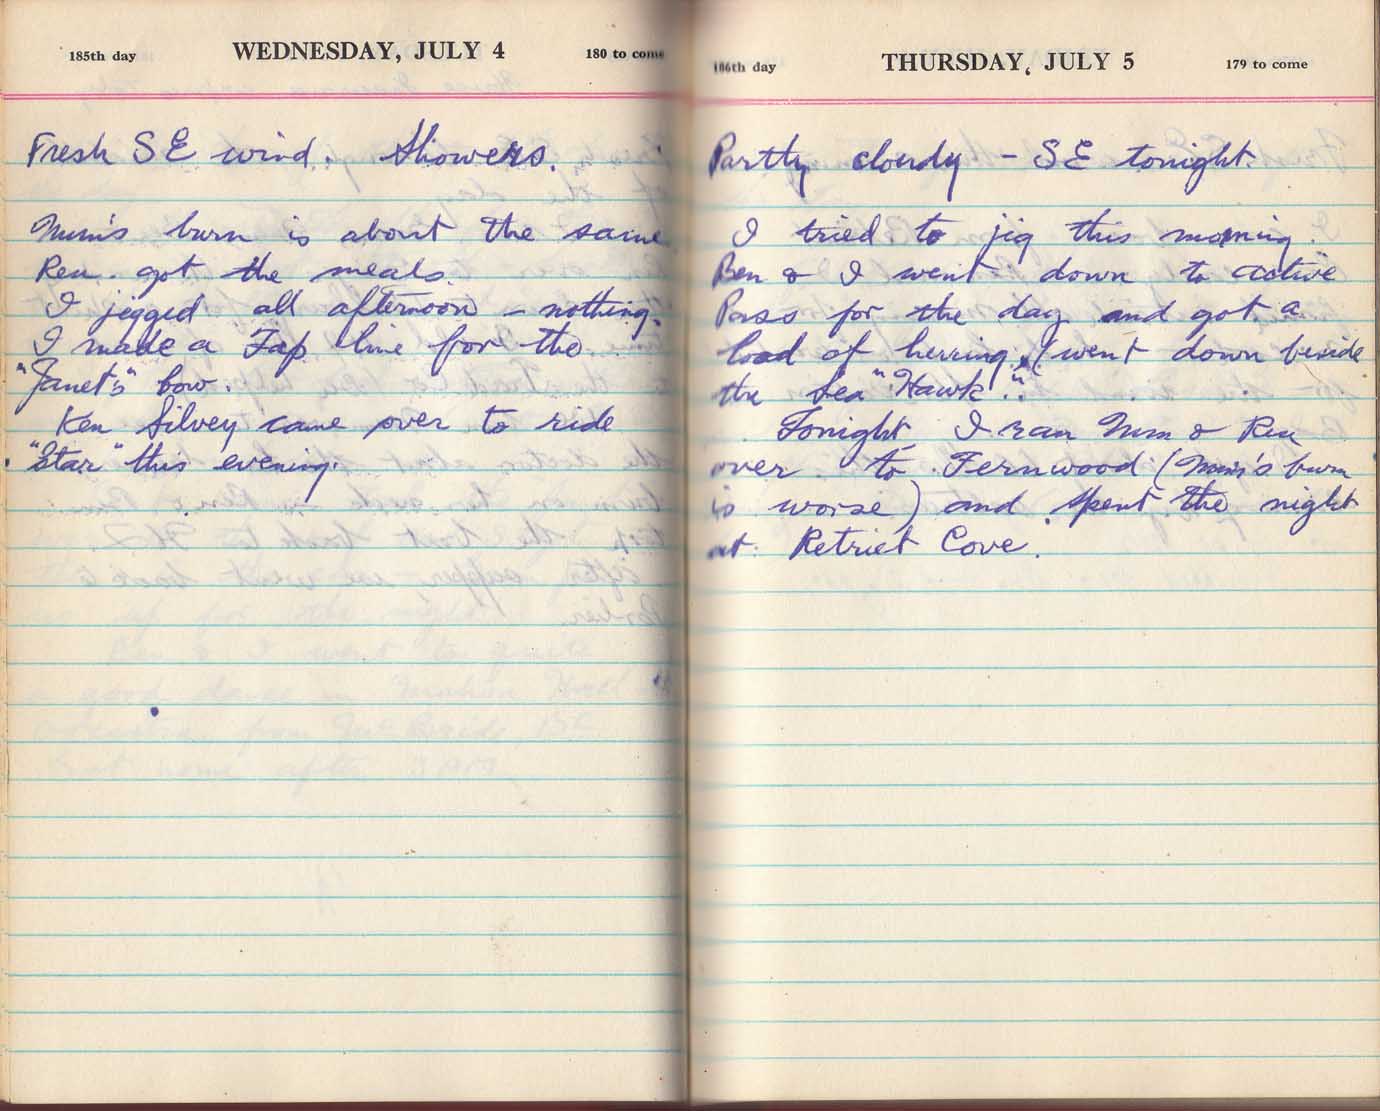 185th day WEDNESDAY, JULY 4 180 to come
Fresh SE wind. Showers.
Mum's burn is about the same
Rea. got the meals.
I jigged all afternoon - nothing.
I made a Tap line for the
"Janet's" bow.
Ken Silvey came over to ride
"Star" this evening.
186th day THURSDAY, JULY 5 179 to come
Partly cloudy - SE tonight.
I tried to jig this morning.
Ben & I went down to active
Pass for the day and got a
load of herring. (went down beside
the Sea "Hawk".
Tonight I ran Mum & Rea
over to Fernwood (Mum's burn
is worse) and spent the night
at Retriet Cove.